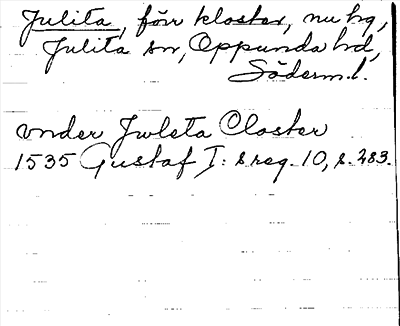 Julita, förr kloster, nu hg,
Julita sn, Oppunda hd,
Söderm.l.
vnder Jwleta Closter
1535 Gustaf I:s reg. 10, s. 283.